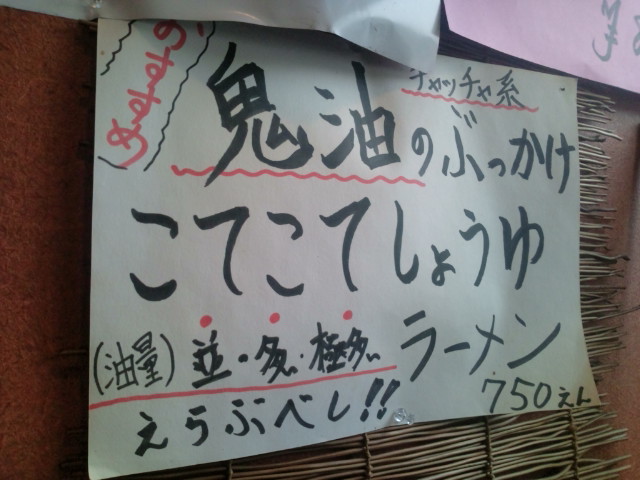 おすすめの
チャッチャ系
鬼油のぶっかけ
こてこてしょうゆ
ラーメン
(油量) 並・多・極多
えらぶべし!!
750えん